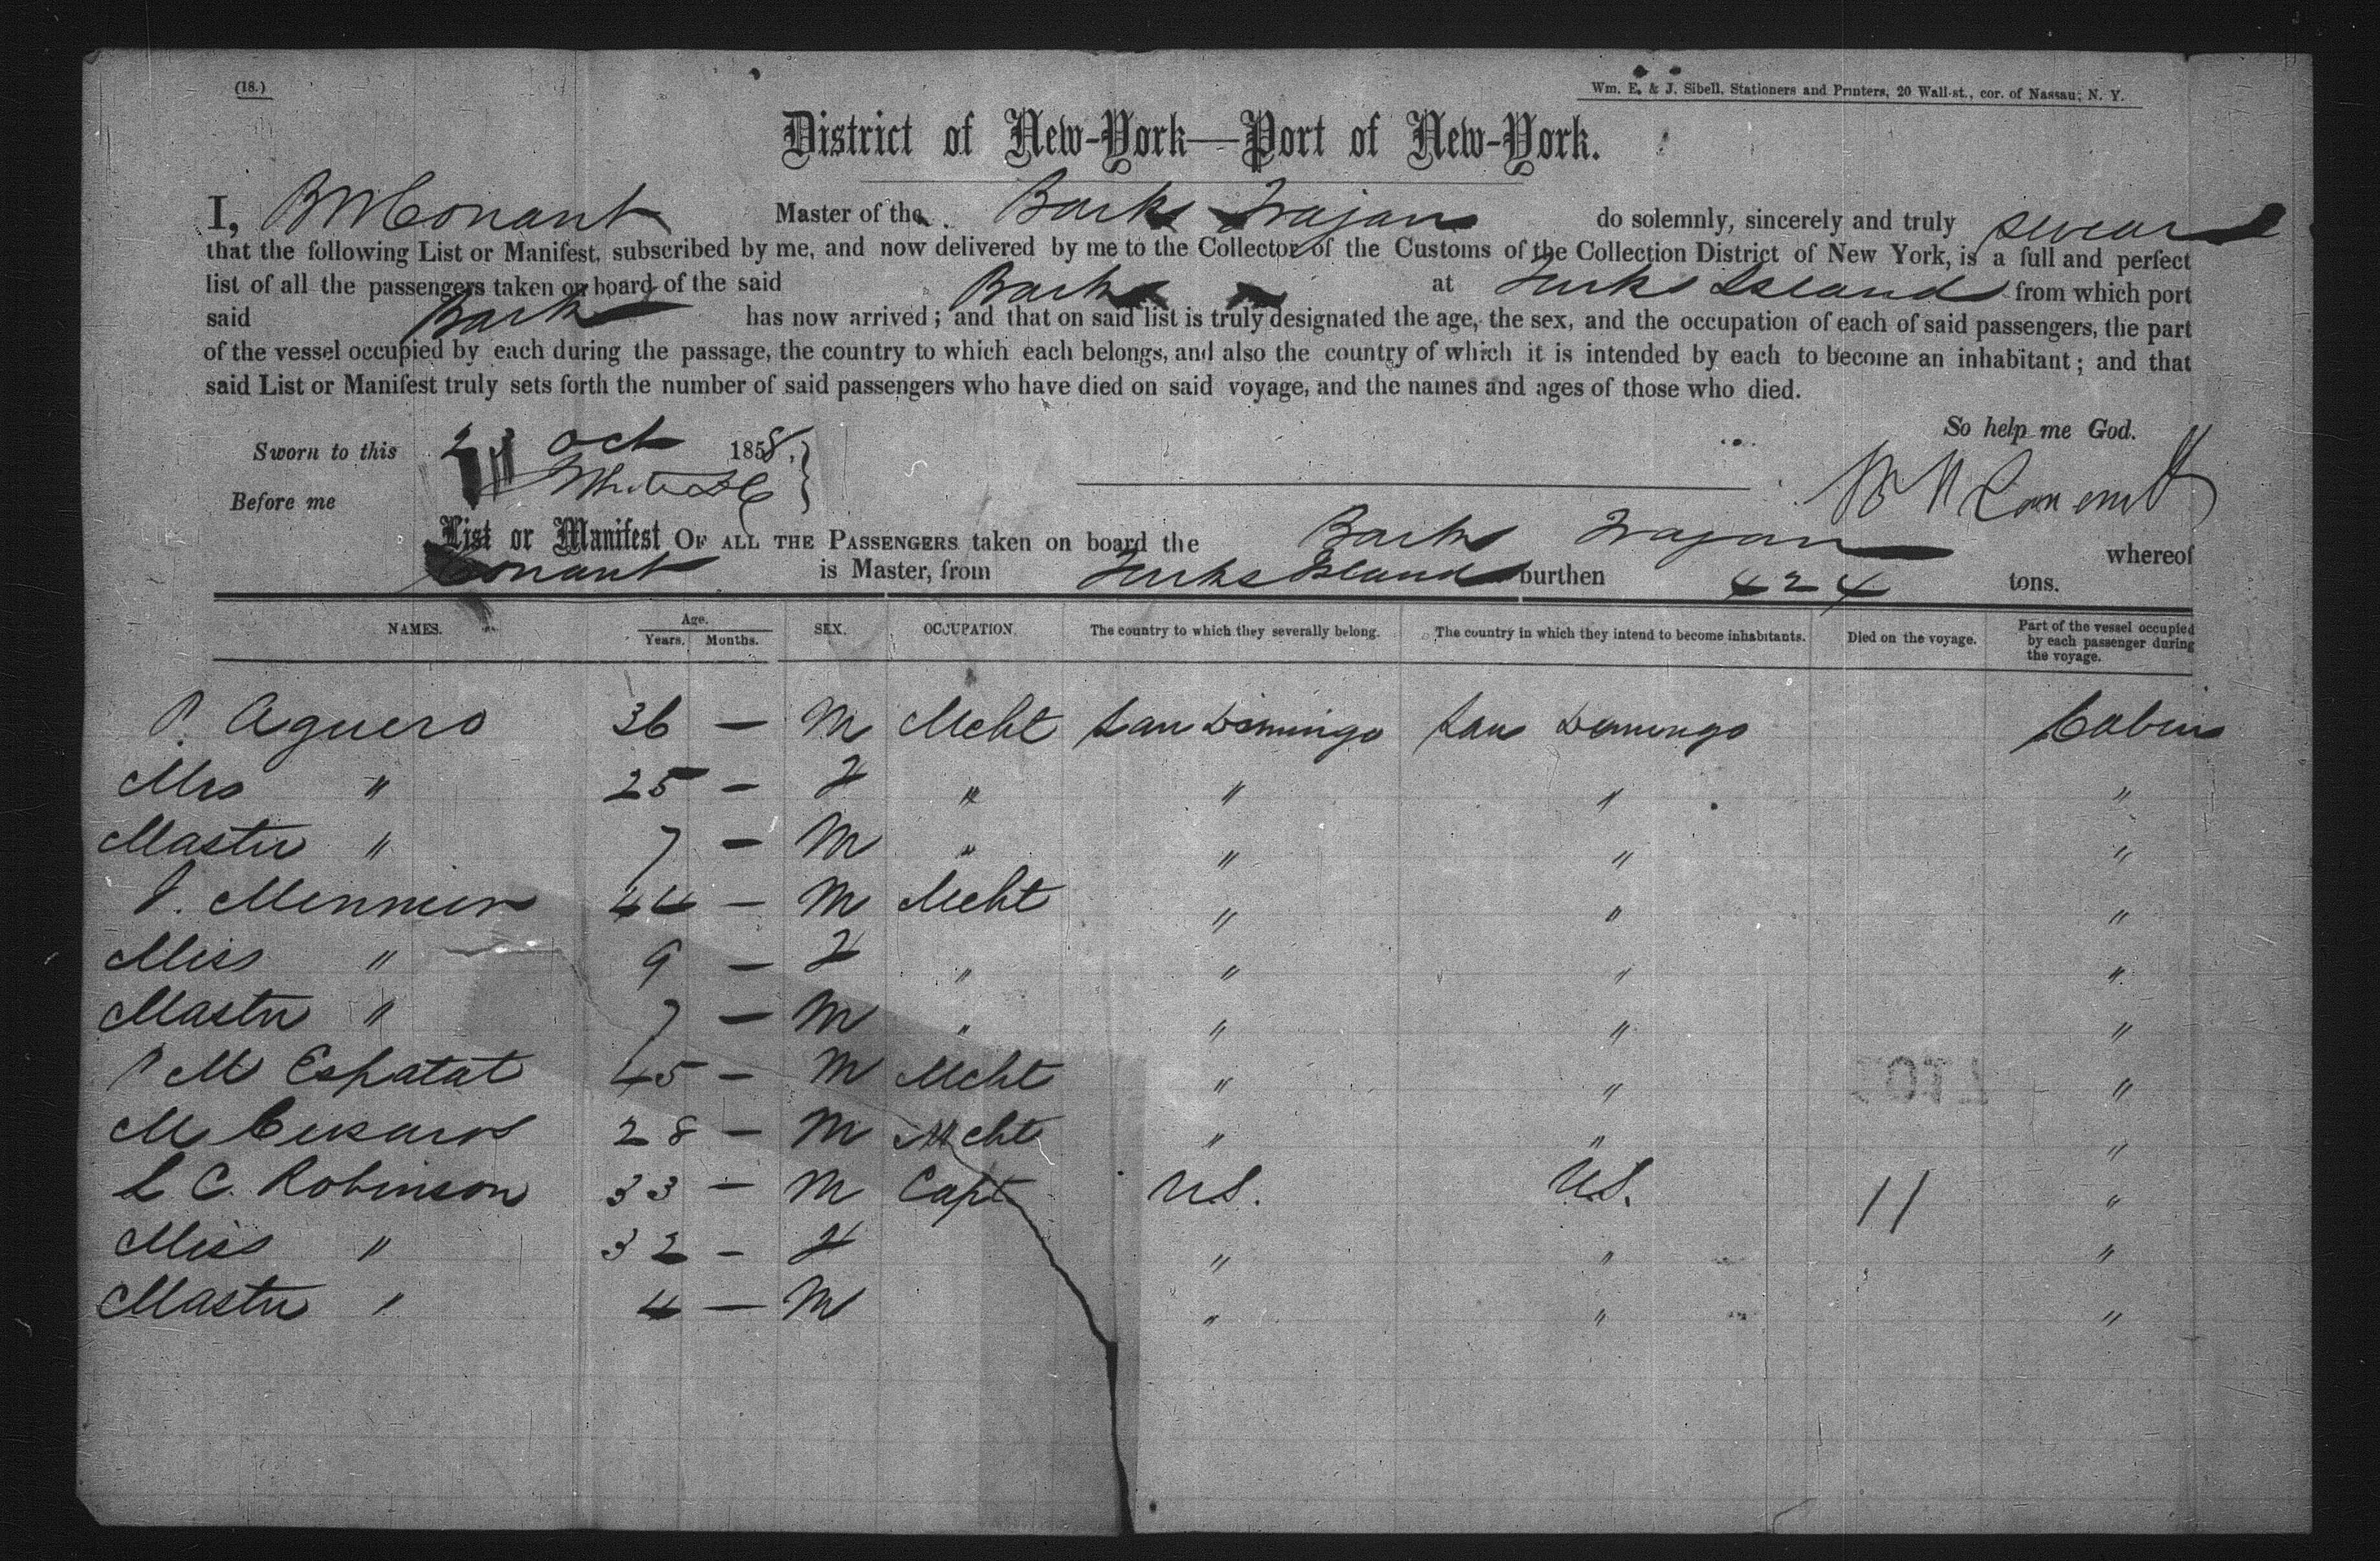 (18.)
Wm. E. & J. Sibell, Stationers and Printers, 20 Wall-st., cor. of Nassau, N. Y.
District of New-York—Port of New-York.
I, B M Conant Master of the Bark Trajan do solemnly, sincerely and truly swear
that the following List or Manifest, subscribed by me, and now delivered by me to the Collector of the Customs of the Collection District of New York, is a full and perfect
list of all the passengers taken on board of the said Bark at Turks Island from which port
said Bark has now arrived; and that on said list is truly designated the age, the sex, and the occupation of each of said passengers, the part
of the vessel occupied by each during the passage, the country to which each belongs, and also the country of which it is intended by each to become an inhabitant; and that
said List or Manifest truly sets forth the number of said passengers who have died on said voyage, and the names and ages of those who died.
So help me God.
Sworn to this 23 Oct 1858,
Before me
Conant
List or Manifest OF ALL THE PASSENGERS taken on board the Bark Trajan whereof
Conant is Master, from Turks Island burthen 424 tons.
NAMES. Age. Years. Months. SEX. OCCUPATION. The country to which they severally belong. The country in which they intend to become inhabitants. Died on the voyage. Part of the vessel occupied by each passenger during the voyage.
P. Aguero 36 — M Mcht San Domingo San Domingo Cabin
Mrs " 25 — F " " " "
Master " 7 — M " " " "
44 — M Mcht " " "
Miss " 9 — F " " " "
Master " 7 — M " " " "
P M Espatat 45 — M Mcht " " "
M 28 — M Mcht " " "
L C. Robinson 33 — M Capt U.S. U.S. 11 "
Miss " 32 — F " " "
Master " 4 — M " " "